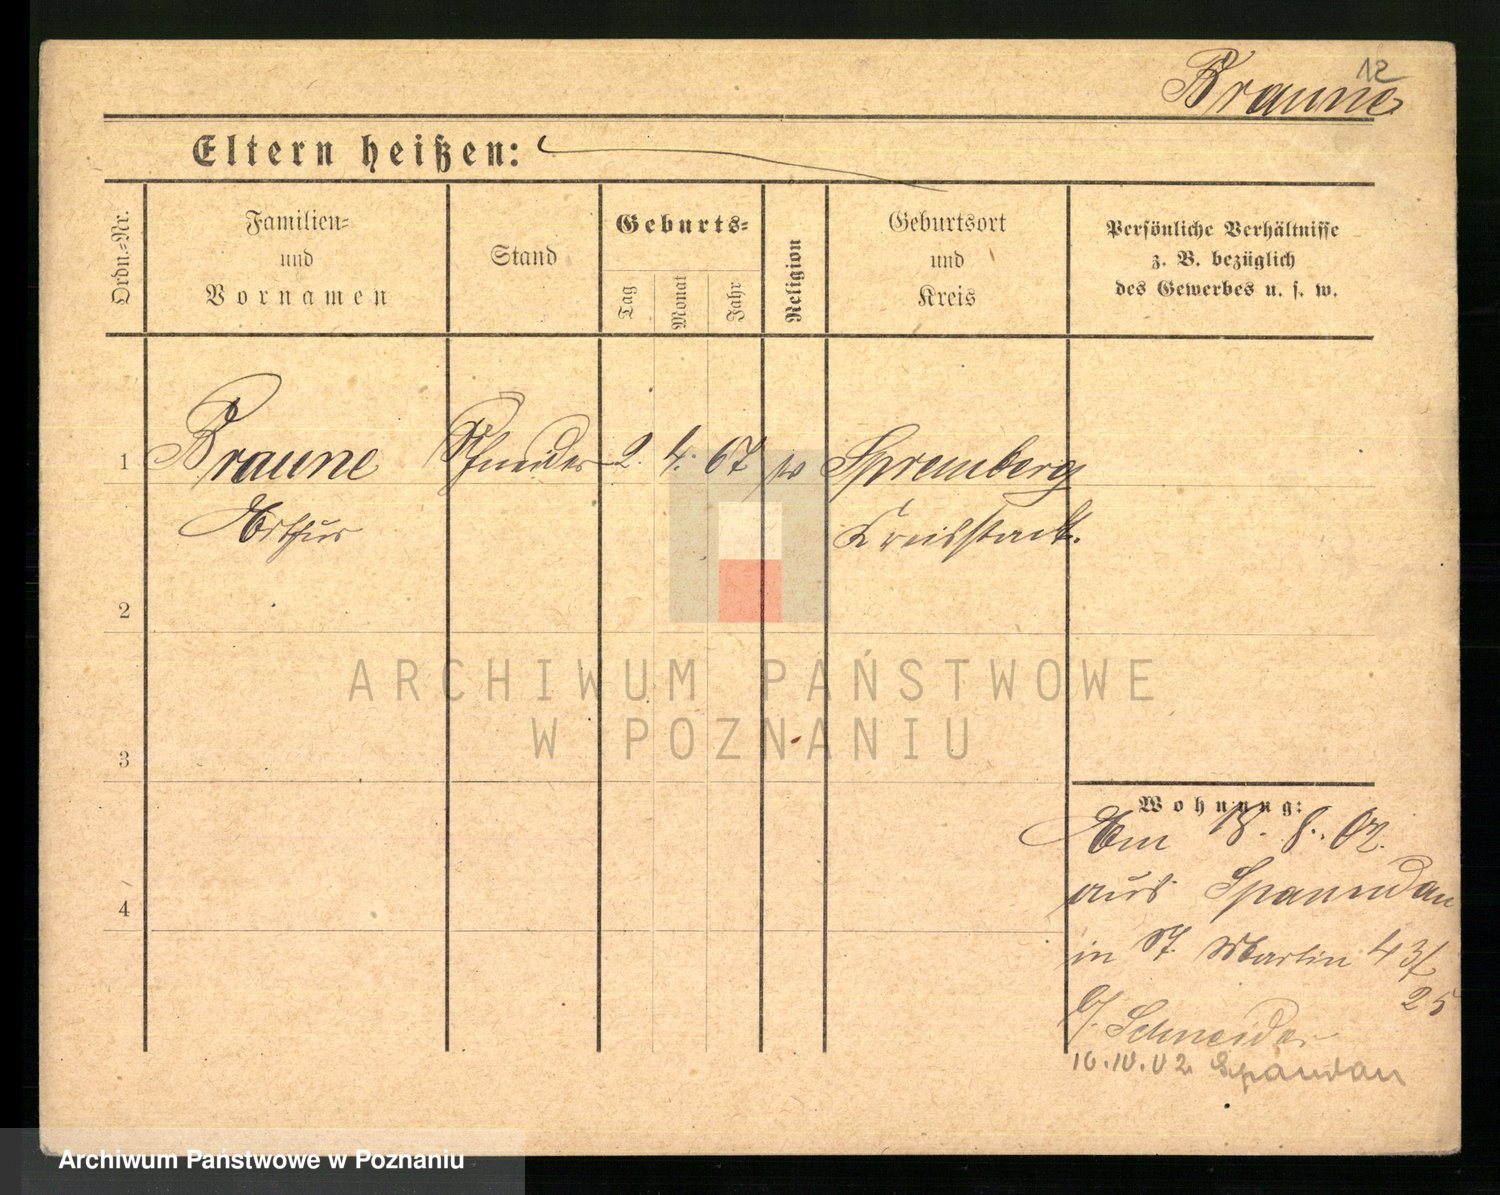 12
Braune
Eltern heißen:
Ordn.-Nr.
Familien-
und
Vornamen
Stand
Geburts-
Tag
Monat
Jahr
Religion
Geburtsort
und
Kreis
Persönliche Verhältnisse
z. B. bezüglich
des Gewerbes u. s. w.
1 Braune Schneider 2. 4. 67 Spremberg
Arthur Kreisstadt.
2
3
4
Wohnung:
Am 18. 8. 02.
aus Spandau
in St. Martin 43/
25
b/. Schneider
10.IV.02 Spandau
ARCHIWUM PAŃSTWOWE
W POZNANIU
Archiwum Państwowe w Poznaniu